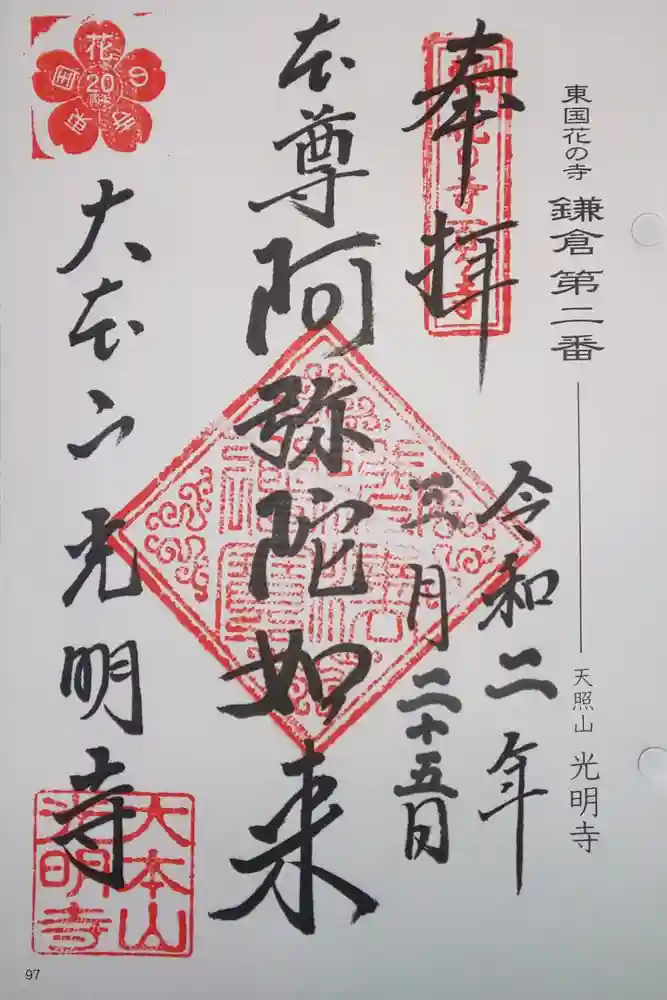 東国花の寺 鎌倉第二番
天照山 光明寺
奉拝
令和二年
三月二十五日
本尊阿弥陀如来
大本山光明寺
花の寺
東国
20
大本山
光明寺
97